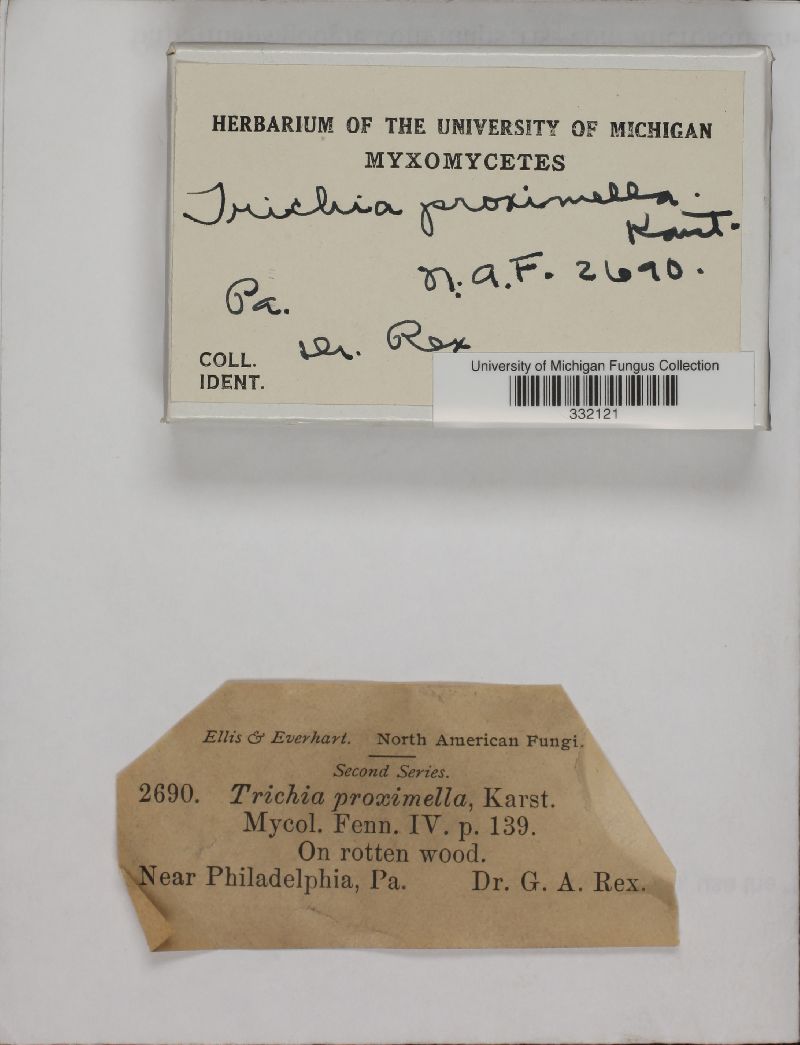 HERBARIUM OF THE UNIVERSITY OF MICHIGAN
MYXOMYCETES
Trichia proximella.
Karst.
N.A.F. 2690.
Pa.
Dr. Rex
COLL.
IDENT.
University of Michigan Fungus Collection
332121
Ellis & Everhart. North American Fungi.
Second Series.
2690. Trichia proximella, Karst.
Mycol. Fenn. IV. p. 139.
On rotten wood.
Near Philadelphia, Pa. Dr. G. A. Rex.